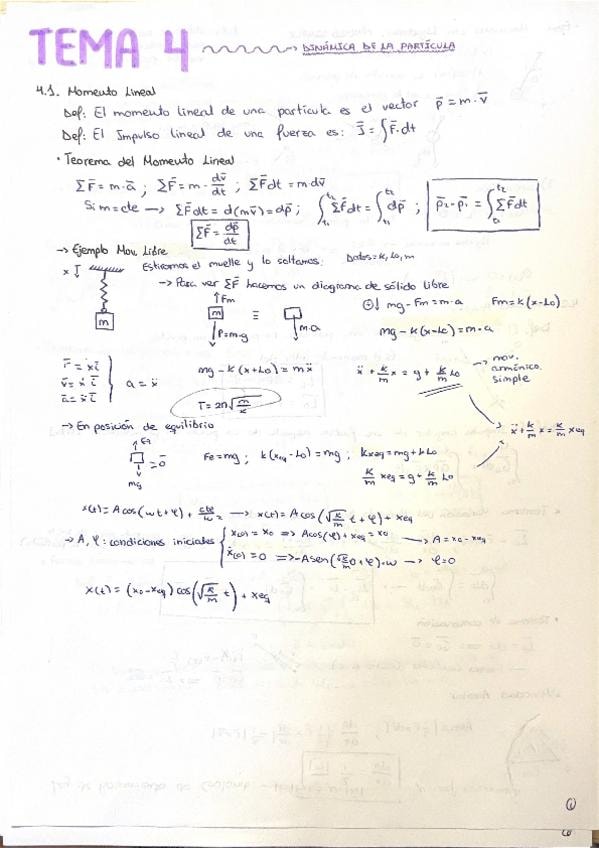 TEMA 4 → DINÁMICA DE LA PARTÍCULA
4.1. Momento Lineal
Def: El momento lineal de una partícula es el vector p̄ = m·v̄
Def: El Impulso lineal de una fuerza es: J̄ = ∫F̄·dt
· Teorema del Momento Lineal
ΣF̄ = m·ā ; ΣF̄ = m·dv̄/dt ; ΣF̄dt = m·dv̄
Si m=cte → ΣF̄dt = d(mv̄) = dp̄ ; ∫_{t₁}^{t₂} ΣF̄dt = ∫_{t₁}^{t₂} dp̄ ; p̄₂-p̄₁ = ∫_{t₁}^{t₂} ΣF̄dt
ΣF̄ = dp̄/dt
→ Ejemplo Mov. Libre
x Estiramos el muelle y lo soltamos: Datos = K, L₀, m
→ Para ver ΣF̄ hacemos un diagrama de sólido libre
m
Fm m ≡ P=m·g m·a
⊕↓ mg - Fm = m·a Fm = K(x-L₀)
mg - K(x-L₀) = m·a
r̄ = x ī
v̄ = ẋ ī
ā = ẍ ī
a = ẍ
mg - K(x+L₀) = mẍ
ẍ + K/m x = g + K/m L₀ → mov. armónico simple
T = 2π√(m/K)
→ ẍ + K/m x = K/m xeq
→ En posición de equilibrio
Fe mg = 0̄
Fe = mg ; K(xeq - L₀) = mg ; Kxeq = mg + KL₀
K/m xeq = g + K/m L₀
x(t) = A cos(wt+φ) + cte/w² → x(t) = A cos(√(K/m) t + φ) + xeq
→ A, φ: condiciones iniciales { x(0) = x₀ ⇒ A cos(φ) + xeq = x₀ → A = x₀ - xeq
ẋ(0) = 0 ⇒ -A sen(√(K/m) 0 + φ)·w → φ = 0
x(t) = (x₀ - xeq) cos(√(K/m) t) + xeq
1